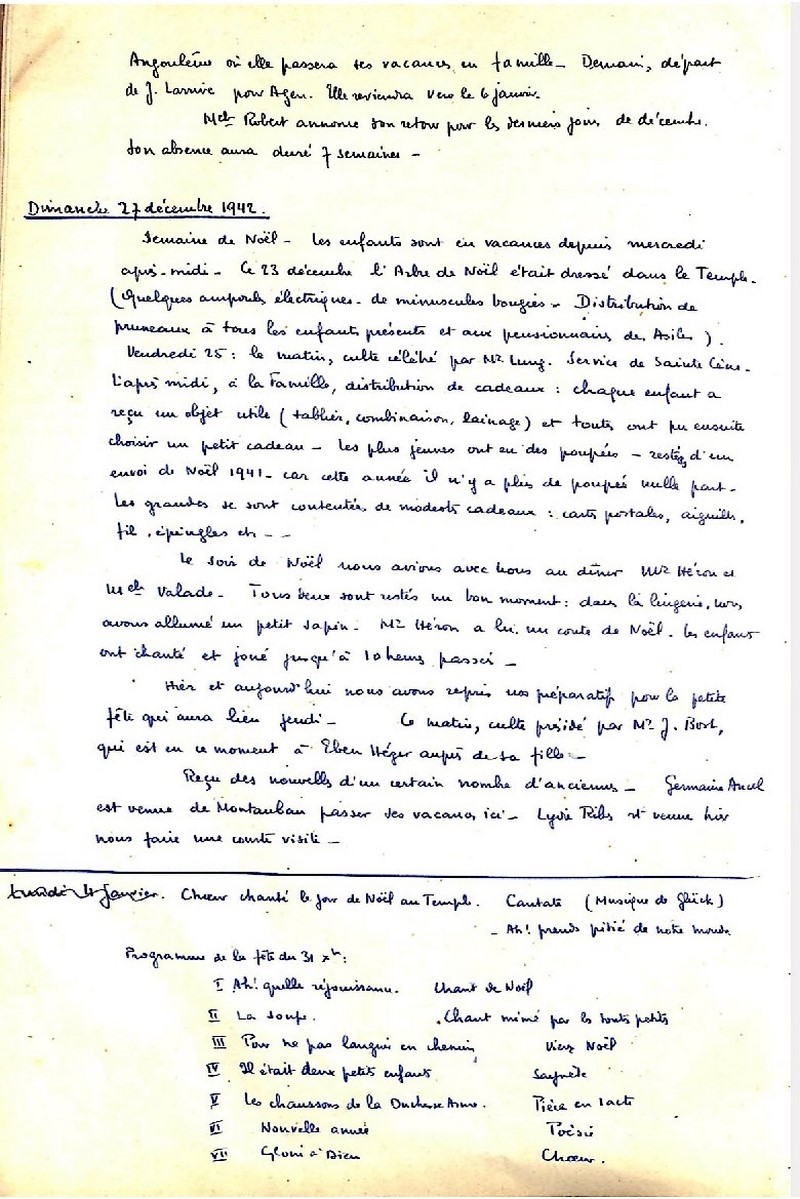 Angoulême où elle passera ses vacances en famille – Demain, départ
de J. Larrive pour Agen. Elle reviendra vers le 6 janvier.
Melle Robert annonce son retour pour les derniers jours de décembre.
Son absence aura duré 7 semaines –
Dimanche 27 décembre 1942.
Semaine de Noël – Les enfants sont en vacances depuis mercredi
après-midi – Ce 23 décembre l'Arbre de Noël était dressé dans le Temple.
(Quelques ampoules électriques – de minuscules bougies – Distribution de
pruneaux à tous les enfants présents et aux pensionnaires des Asiles).
Vendredi 25 : le matin, culte célébré par Mr Lung. Service de Sainte Cène.
L'après midi, à la Famille, distribution de cadeaux : chaque enfant a
reçu un objet utile (tablier, combinaison, lainage) et toutes ont pu ensuite
choisir un petit cadeau – Les plus jeunes ont eu des poupées – restes d'un
envoi de Noël 1941 – car cette année il n'y a plus de poupée nulle part –
Les grandes se sont contentées de modestes cadeaux : cartes postales, aiguilles,
fil, épingles etc – –
Le soir de Noël nous avions avec nous au dîner Mr Héron et
Melle Valade – Tous deux sont restés un bon moment : dans la lingerie, nous
avons allumé un petit sapin – Mr Héron a lu un conte de Noël – les enfants
ont chanté et joué jusqu'à 10 heures passées –
Hier et aujourd'hui nous avons repris nos préparatifs pour la petite
fête qui aura lieu jeudi – Ce matin, culte présidé par Mr J. Bost,
qui est en ce moment à Eben Hézer auprès de sa fille –
Reçu des nouvelles d'un certain nombre d'anciennes – Germaine Ancel
est venue de Montauban passer ses vacances ici – Lydie Ribs est venue hier
nous faire une courte visite –
Lundi 4 Janvier. Chœur chanté le jour de Noël au Temple. Cantate (Musique de Glück)
– Ah! prends pitié de notre monde
Programme de la fête du 31 xbre :
I Ah! quelle réjouissance. Chant de Noël
II La soupe. Chant mimé par les touts petits
III Pour ne pas languir en chemin, Vieux Noël
IV Il était deux petits enfants Saynète
V Les chaussons de la Duchesse Anne. Pièce en 1 acte
VI Nouvelle année Poésie
VII Gloire à Dieu Chœur.